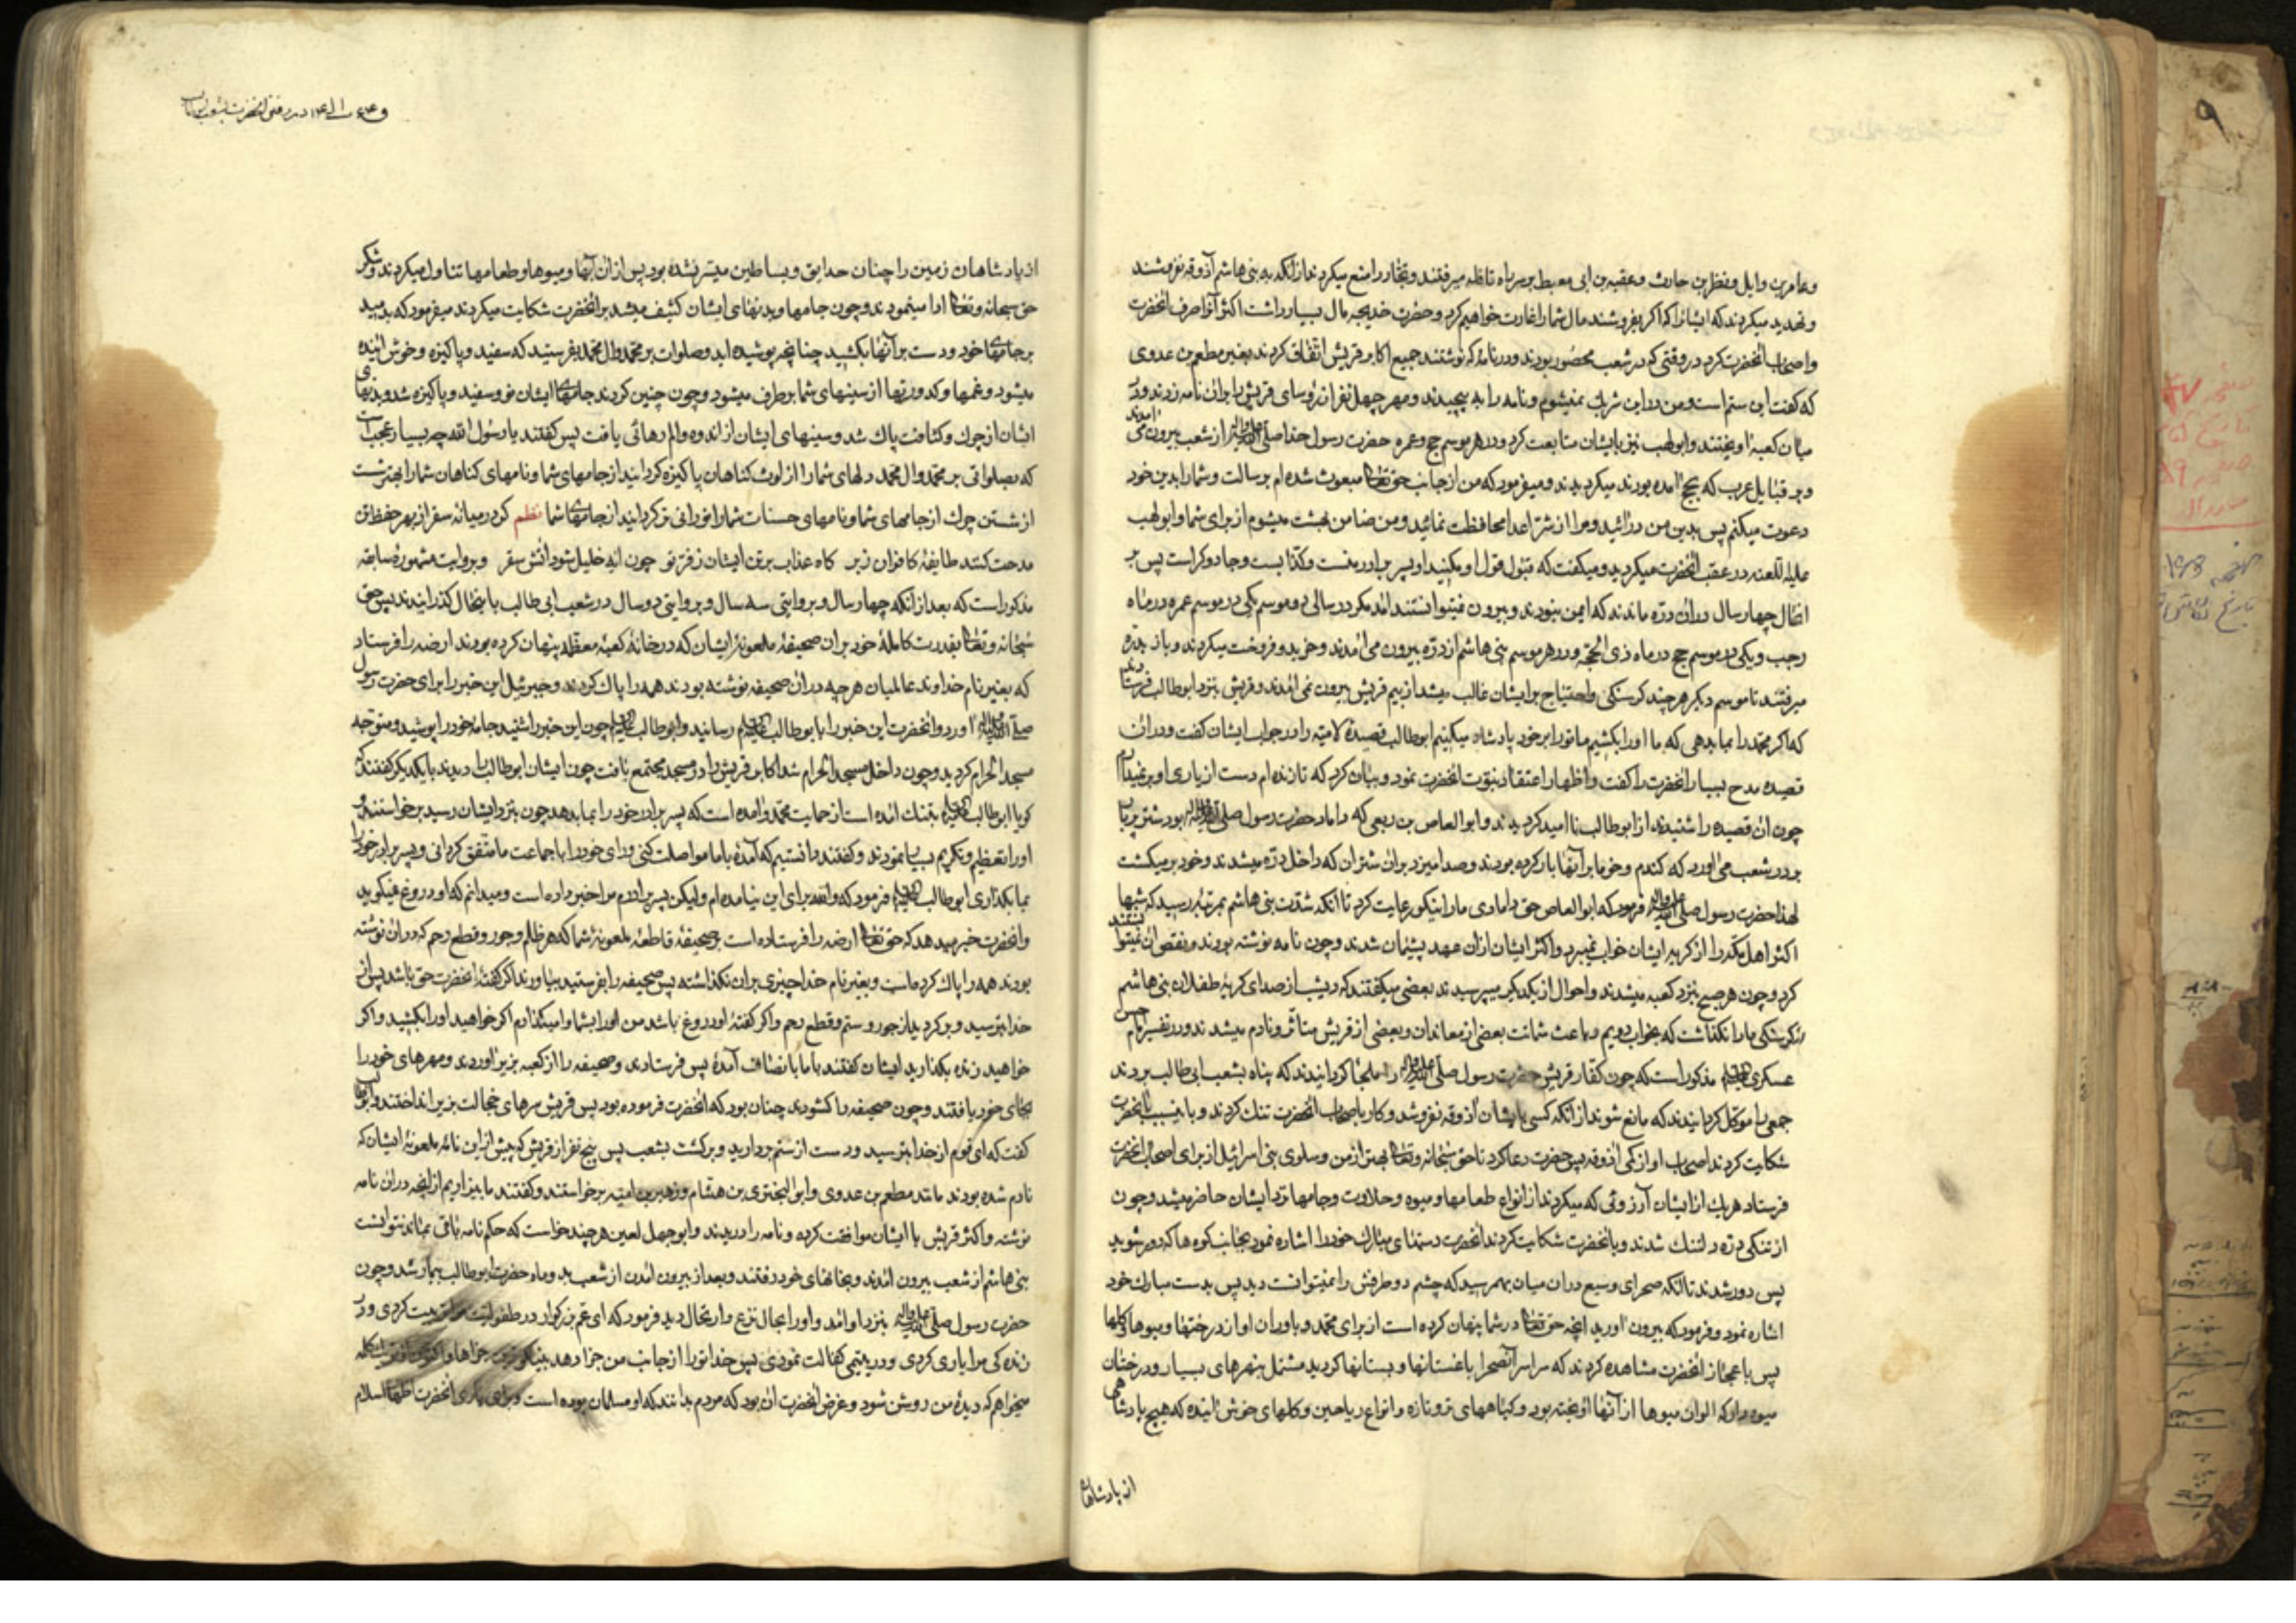 وعامر بن وایل ونضر بن حارث وعقبه بن ابی معیط بر سر راه قافله میرفتند وتجار را منع میکردند از انکه به بنی هاشم آذوقه نفروشند
وتهدید میکردند که ایشانرا که اکر بفروشند مال شما را غارت خواهیم کرد وحضرت خدیجه مال بسیار داشت اکثر آنرا صرف انحضرت
واصحاب انحضرت کرد در وقتی که در شعب محصور بودند ودر نامه که نوشتند جمیع اکابر قریش اتفاق کردند بغیر مطعم بن عدوی
که کفت این ستم است ومن در این شریک نمیشوم ونامه را به پیچیدند ومهر چهل نفر از رؤسای قریش را بر ان نامه زدند ودر
میان کعبه اویختند وابولهب نیز بایشان متابعت کرد ودر هر موسم حج وعمره حضرت رسول خدا صلی الله علیه واله از شعب بیرون می امدند
وبر قبایل عرب که بحج امده بودند میکردیدند ومیفرمود که من از جانب حق تعالی مبعوث شده ام برسالت وشما را بدین خود
دعوت میکنم پس بدین من درائید ومرا از شر اعدا محافظت نمائید ومن ضامن بهشت میشوم از برای شما وابولهب
علیه اللعنه در عقب انحضرت میکردید ومیکفت که قبول قول او مکنید او پسر برادر منست وکذابست وجادوکر است پس بر
انحال چهار سال در ان دره ماندند که ایمن نبودند وبیرون نمیتوانستند امد مکر در سالی دو موسم یکی در موسم عمره در ماه
رجب ویکی در موسم حج در ماه ذی الحجه ودر هر موسم بنی هاشم از دره بیرون می امدند وخرید وفروخت میکردند وباز بدره
میرفتند تا موسم دیکر هر چند کرسنکی واحتیاج بر ایشان غالب میشد از بیم قریش بیرون نمی امدند وقریش بنزد ابوطالب فرستادند
که اکر محمد را بما بدهی که ما او را بکشیم ما تو را بر خود پادشاه میکنیم ابوطالب قصیدهٔ لامیه را در جواب ایشان کفت ودر ان
قصیده مدح بسیار انحضرت را کفت واظهار اعتقاد بنبوت انحضرت نمود وبیان کرد که تا زنده ام دست از یاری او بر نمیدارم
چون ان قصیده را شنیدند از ابوطالب ناامید کردیدند وابوالعاص بن ربیع که داماد حضرت رسول صلی الله علیه واله بود شتر پر بار
بر در شعب می اورد که کندم وخرما بر آنها بار کرده بودند وصدا میزد بر ان شتران که داخل دره میشدند وخود بر میکشت
لهذا حضرت رسول صلی الله علیه واله فرمود که ابوالعاص حق دامادی ما را نیکو رعایت کرد تا انکه شدت بنی هاشم بمرتبه رسید که شبها
اکثر اهل مکه را از کریه ایشان خواب نمیبرد واکثر ایشان از ان عهد پشیمان شدند وچون نامه نوشته بودند ونقض ان نمیتوانستند
کرد وچون هر صبح بنزد کعبه میشدند واحوال از یکدیکر میپرسیدند بعضی میکفتند که دیشب از صدای کریهٔ طفلان بنی هاشم
کرسنکی ما را نکذاشت که بخواب رویم وباعث شماتت بعضی از معاندان وبعضی از قریش متاثر ونادم میشدند ودر تفسیر امام حسن
عسکری مذکور است که چون کفار قریش حضرت رسول صلی الله علیه واله را ملجأ کردانیدند که پناه بشعب ابی طالب بردند
جمعی را موکل کردانیدند که مانع شوند از انکه کسی بایشان آذوقه نفروشد وکار باصحاب انحضرت تنک کردند وباینسبب بانحضرت
شکایت کردند اصحاب او از کمی آذوقه پس حضرت دعا کرد تا حق سبحانه وتعالی بهتر از من وسلوی بنی اسرائیل از برای اصحاب انحضرت
فرستاد هر یک از ایشان آرزوئی که میکردند از انواع طعامها ومیوه وحلاوت وجامها نزد ایشان حاضر میشد وچون
از تنکی دره دلتنک شدند وبانحضرت شکایت کردند انحضرت دستهای مبارک خود را اشاره نمود بجانب کوه ها که دور شوید
پس دور شدند تا انکه صحرای وسیع در ان میان بهم رسید که چشم دو طرفش را نمیتوانست دید پس بدست مبارک خود
اشاره نمود وفرمود که بیرون اورید انچه حق تعالی در شما پنهان کرده است از برای محمد ویاوران او از درختها ومیوها وکلها
پس باعجاز انحضرت مشاهده کردند که سراسر آنصحرا باغستانها وبستانها کردید مشتمل بنهرهای بسیار ودرختان
میوه دار که الوان میوها از آنها اویخته بود وکیاههای تر وتازه وانواع ریاحین وکلهای خوش آینده که هیچ پادشاهی
از پادشاهان
در رفتن انحضرت بشعب ابوطالب
از پادشاهان زمین را چنان حدایق وبساطین میسر نشده بود پس از ان آبها ومیوها وطعامها تناول میکردند وشکر
حق سبحانه وتعالی ادا مینمودند وچون جامها وبدنهای ایشان کثیف میشد بر انحضرت شکایت میکردند میفرمود که بدمید
بر جامهای خود ودست بر آنها بکشید چنانچه پوشیده اید وصلوات بر محمد وال محمد بفرستید که سفید وپاکیزه وخوش آینده
میشود وغمها وکدورتها از سینهای شما برطرف میشود وچون چنین کردند جامهای ایشان نو وسفید وپاکیزه شد وبدنهای
ایشان از چرک وکثافت پاک شد وسینهای ایشان از اندوه والم رهائی یافت پس کفتند یا رسول الله چه بسیار عجب است
که بصلواتی بر محمد وال محمد دلهای شما را از لوث کناهان پاکیزه کردانید از جامهای شما ونامهای کناهان شما را بهتر شست
از شستن چرک از جامهای شما ونامهای حسنات شما را نورانی تر کردانید از جامهای شما نظم کر در میانه سقر از بهر حفظ تن
مدحت کنند طایفهٔ کافران زبر کاه عذاب بر تن ایشان ز فرّ تو چون لاله خلیل شود آتش سقر وبروایت مشهوره سابقه
مذکور است که بعد از انکه چهار سال وبروایتی سه سال وبروایتی دو سال در شعب ابی طالب باینحال کذرانیدند پس حق
سبحانه وتعالی بقدرت کاملهٔ خود بر ان صحیفهٔ ملعونهٔ ایشان که در خانهٔ کعبهٔ معظمه پنهان کرده بودند ارضه را فرستاد
که بغیر نام خداوند عالمیان هر چه در ان صحیفه نوشته بودند همه را پاک کردند وجبرئیل این خبر را برای حضرت رسول
صلی الله علیه واله اورد وانحضرت این خبر را بابوطالب رسانید وابوطالب چون این خبر را شنید جامه خود را پوشید ومتوجه
مسجد الحرام کردید وچون داخل مسجد الحرام شد اکابر قریش را در مسجد مجتمع یافت چون ایشان ابوطالب را دیدند بایکدیکر کفتند که
کویا ابوطالب بتنک امده است از حمایت محمد وامده است که پسر برادر خود را بما بدهد چون بنزد ایشان رسید برخواستند
او را تعظیم وتکریم بسیار نمودند وکفتند دانستیم که آمدهٔ با ما مواصلت کنی ورای خود را با جماعت ما متفق کردانی وپسر برادر خود را
بما بکذاری ابوطالب فرمود که والله برای این نیامده ام ولیکن پسر برادرم مرا خبر داده است ومیدانم که او دروغ نمیکوید
وانحضرت خبر میدهد که حق تعالی ارضه را فرستاده است بر صحیفهٔ قاطعهٔ ملعونهٔ شما که هر ظلم وجور وقطع رحم که در ان نوشته
بودند همه را پاک کرده است وبغیر نام خدا چیزی بر ان نکذاشته پس صحیفه را بفرستید بیاورند اکر کفتهٔ انحضرت حق باشد پس از
خدا بترسید وبرکردید از جور وستم وقطع رحم واکر کفتهٔ او دروغ باشد من او را بشما وامیکذارم اکر خواهید او را بکشید واکر
خواهید زنده بکذارید ایشان کفتند با ما بانصاف آمدهٔ پس فرستادند وصحیفه را از کعبه بزیر اوردند ومهرهای خود را
بجای خود یافتند وچون صحیفه را کشودند چنان بود که انحضرت فرموده بود پس قریش سرهای خجالت بزیر انداختند وابوطالب
کفت که ای قوم از خدا بترسید ودست از ستم بردارید وبرکشت بشعب پس پنج نفر از قریش که پیش از این نامهٔ ملعونهٔ ایشان که
نادم شده بودند مانند مطعم بن عدوی وابوالبختری بن هشام وزهیر بن امیه برخواستند وکفتند ما بیزاریم از انچه در ان نامه
نوشته واکثر قریش با ایشان موافقت کرده ونامه را دریدند وابوجهل لعین هر چند خواست که حکم نامه باقی بماند نتوانست
بنی هاشم از شعب بیرون امدند وبخانهای خود رفتند وبعد از بیرون امدن از شعب بدو ماه حضرت ابوطالب بیمار شد وچون
حضرت رسول صلی الله علیه واله بنزد او امد واو را بحال نزع وارتحال دید فرمود که ای عم بزرکوار در طفولیت مرا تربیت کردی ودر
زنده کی مرا یاری کردی ودر یتیمی کفالت نمودی پس خدا تو را از جانب من جزا دهد
میخواهم که دیدهٔ من روشن شود وغرض انحضرت ان بود که مردم بدانند که او مسلمان بوده است وبرای یاری انحضرت اظهار اسلام